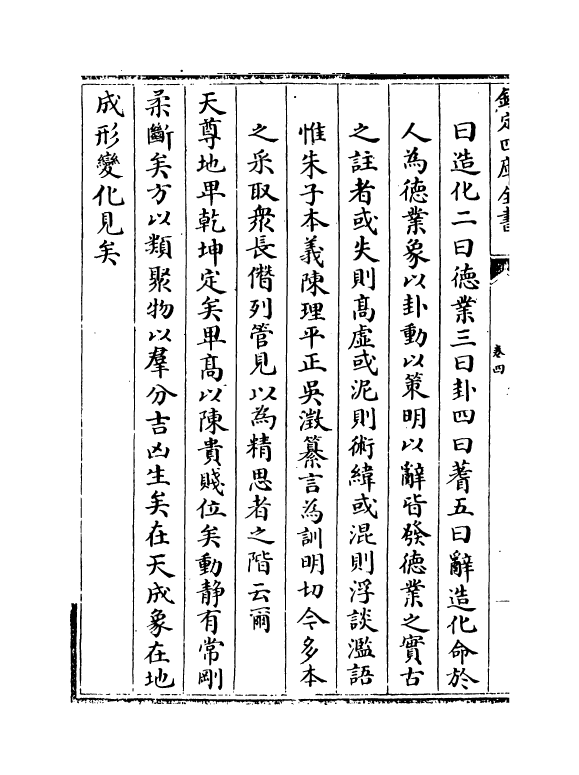 欽定四庫全書
卷四
曰造化二曰德業三曰卦四曰蓍五曰辭造化命於
人為德業象以卦動以策明以辭皆發德業之實古
之註者或失則髙虛或泥則術緯或混則浮談濫語
惟朱子本義陳理平正吳澂纂言為訓明切今多本
之采取衆長僭列管見以為精思者之階云爾
天尊地卑乾坤定矣卑髙以陳貴賤位矣動静有常剛
柔斷矣方以類聚物以羣分吉凶生矣在天成象在地
成形變化見矣